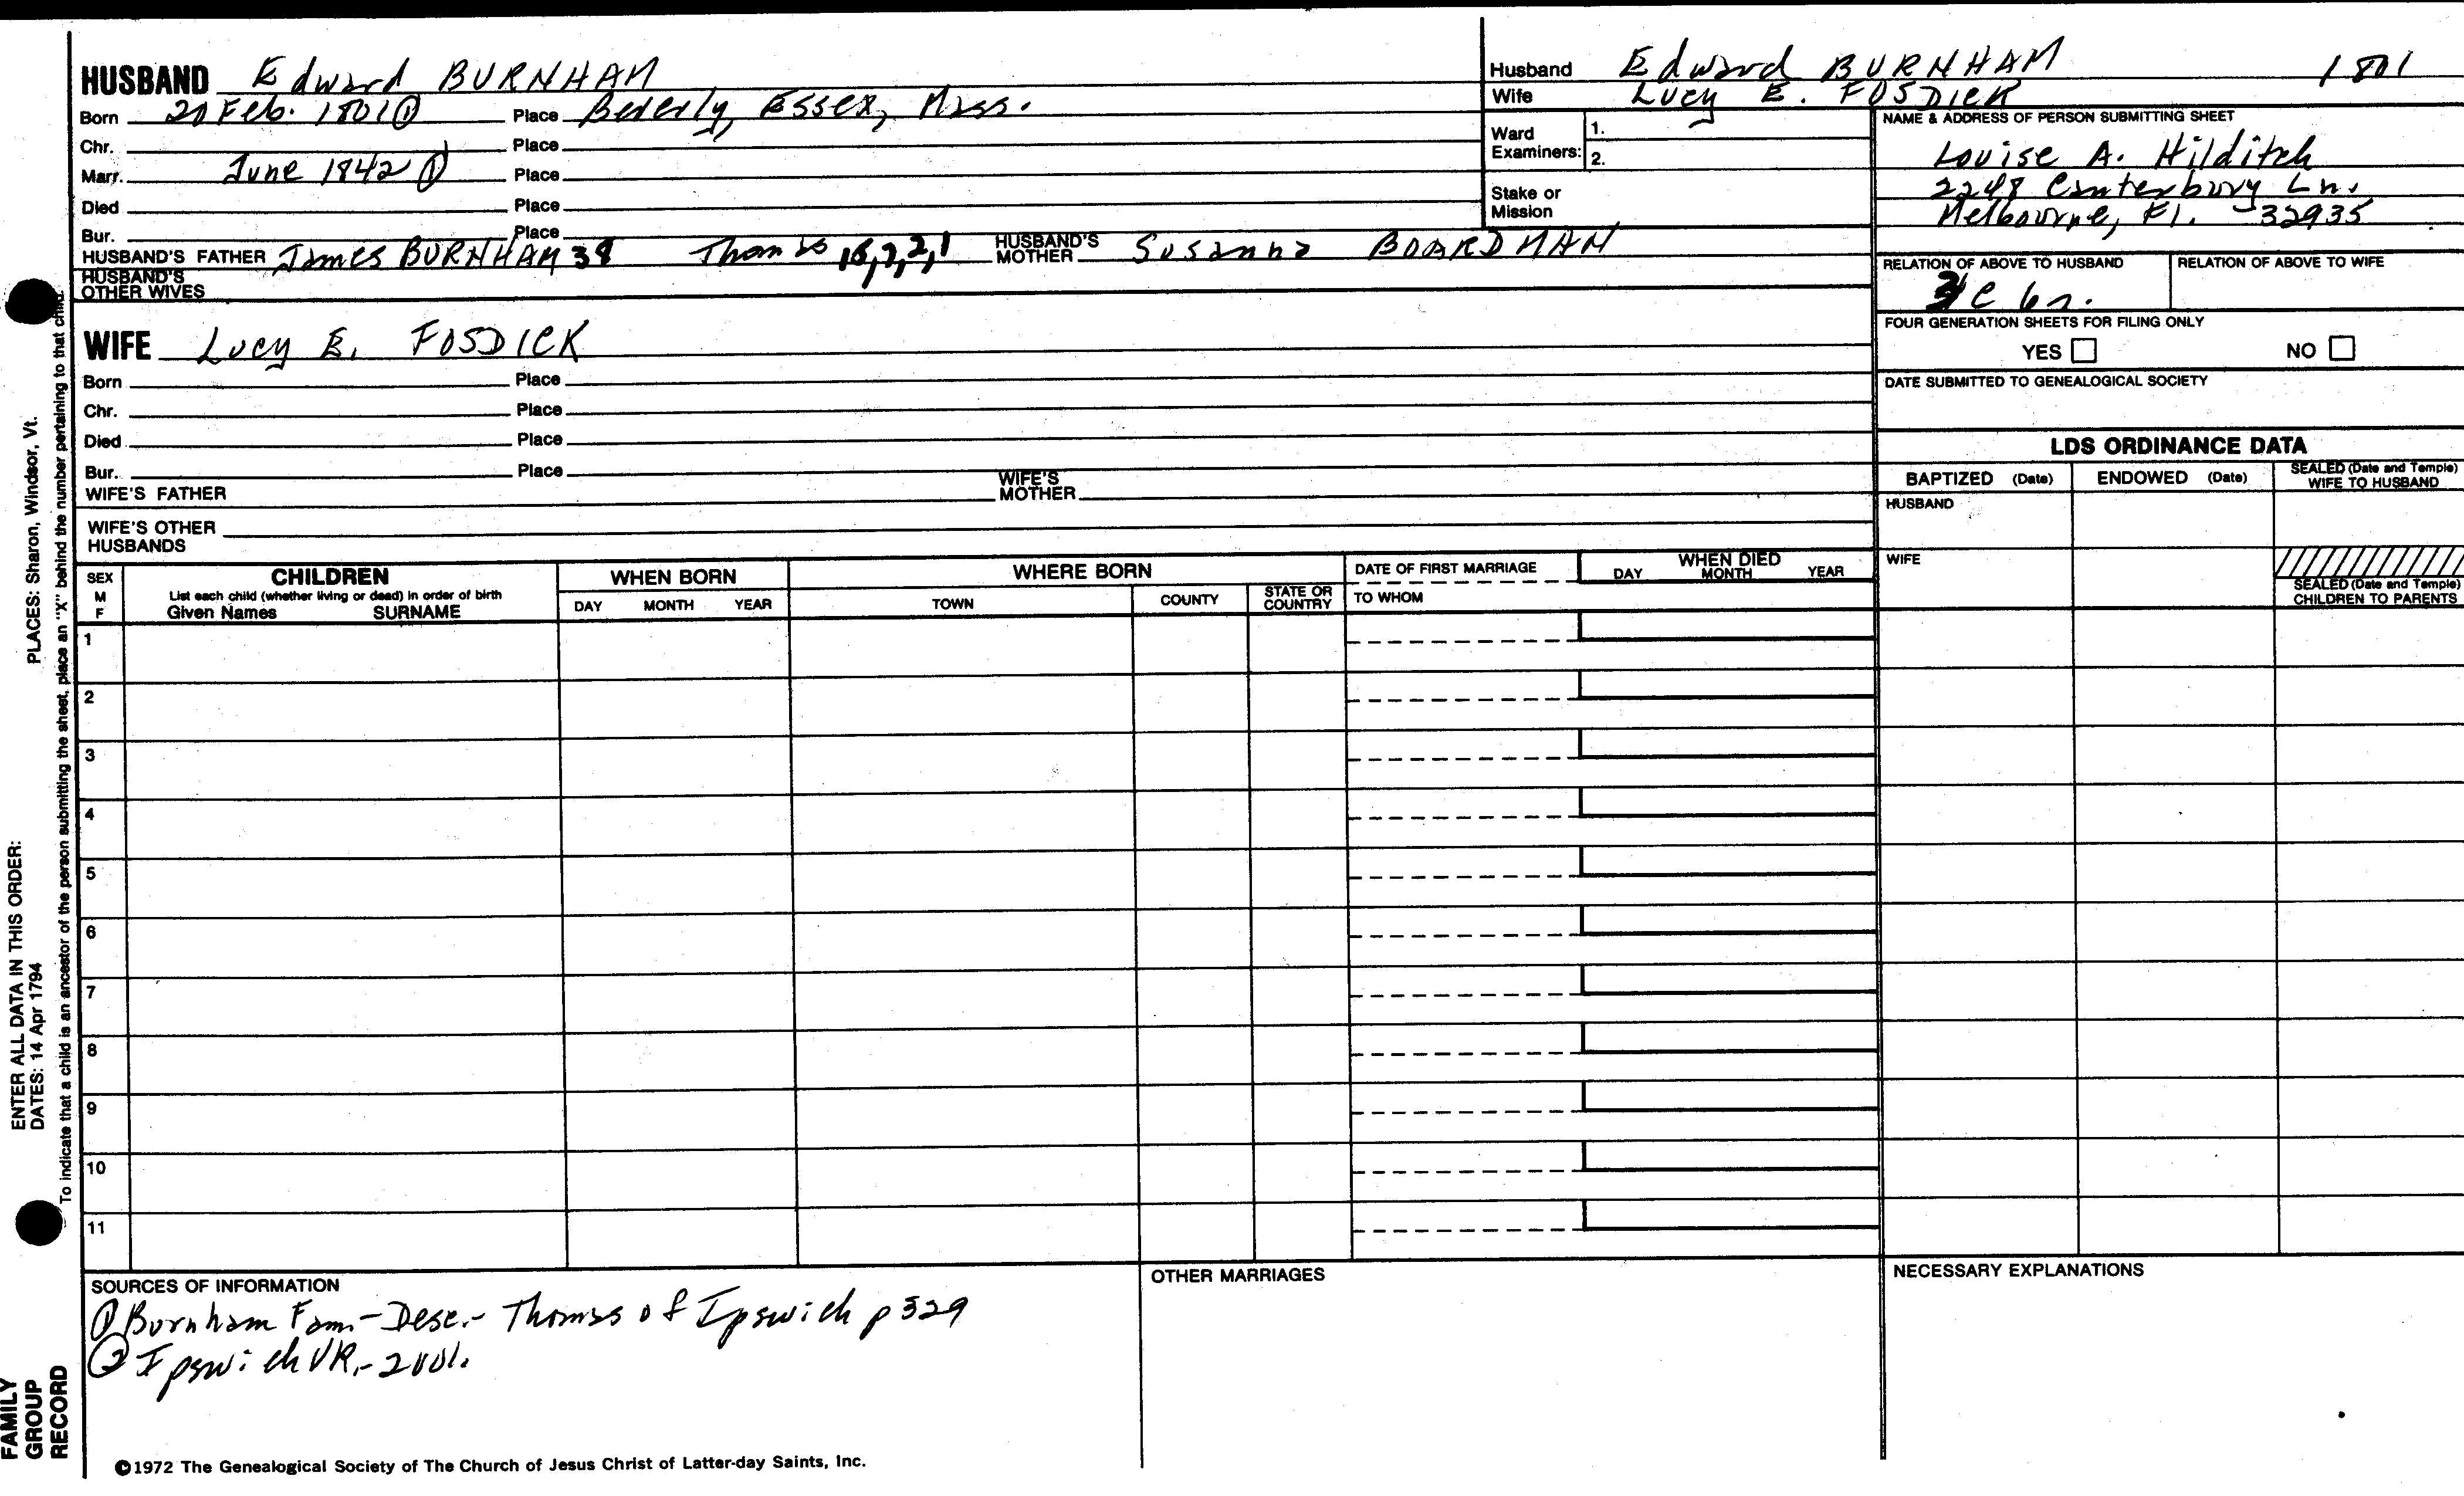 HUSBAND Edward BURNHAM
Born 20 Feb. 1801 ① Place Beverly, Essex, Mass.
Chr. Place
Marr. June 1842 ① Place
Died Place
Bur. Place
HUSBAND'S FATHER James BURNHAM 38 Thomas 16,7,2,1 HUSBAND'S MOTHER Susanna BOARDMAN
HUSBAND'S OTHER WIVES
WIFE Lucy E. FOSDICK
Born Place
Chr. Place
Died Place
Bur. Place
WIFE'S FATHER WIFE'S MOTHER
WIFE'S OTHER HUSBANDS
Husband Edward BURNHAM 1801
Wife Lucy E. FOSDICK
Ward Examiners: 1.
2.
Stake or Mission
NAME & ADDRESS OF PERSON SUBMITTING SHEET
Louise A. Hilditch
2248 Canterbury Ln.
Melbourne, Fl. -32935
RELATION OF ABOVE TO HUSBAND RELATION OF ABOVE TO WIFE
C 6r.
FOUR GENERATION SHEETS FOR FILING ONLY
YES NO
DATE SUBMITTED TO GENEALOGICAL SOCIETY
LDS ORDINANCE DATA
BAPTIZED (Date) ENDOWED (Date) SEALED (Date and Temple) WIFE TO HUSBAND
HUSBAND
WIFE
SEALED (Date and Temple) CHILDREN TO PARENTS
SEX M F
CHILDREN
List each child (whether living or dead) in order of birth
Given Names SURNAME
WHEN BORN
DAY MONTH YEAR
WHERE BORN
TOWN COUNTY STATE OR COUNTRY
DATE OF FIRST MARRIAGE
TO WHOM
WHEN DIED
DAY MONTH YEAR
1
2
3
4
5
6
7
8
9
10
11
SOURCES OF INFORMATION
① Burnham Fam.-Desc.- Thomas of Ipswich p 329
② Ipswich VR.-
OTHER MARRIAGES
NECESSARY EXPLANATIONS
©1972 The Genealogical Society of The Church of Jesus Christ of Latter-day Saints, Inc.
FAMILY GROUP RECORD
ENTER ALL DATA IN THIS ORDER:
DATES: 14 Apr 1794
PLACES: Sharon, Windsor, Vt.
To indicate that a child is an ancestor of the person submitting the sheet, place an "X" behind the number pertaining to that child.